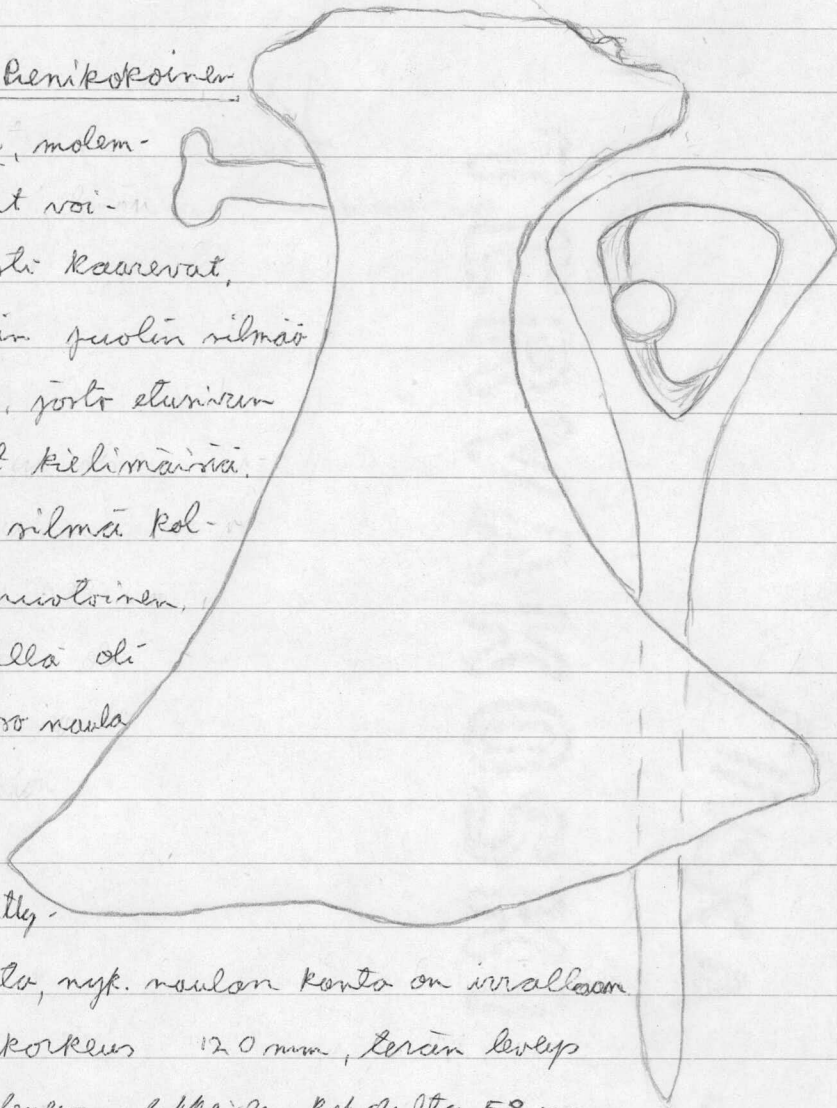 Pienikokoinen
, molem-
t voi-
sti kaarevat,
in puolin silmää
, josta etusivun
kielimäisiä.
silmä kol-
muotoinen.
ellä oli
so naula
tty-
ta, nyk. naulan kanta on irrallaan
korkeus 120 mm, terän leveys
58